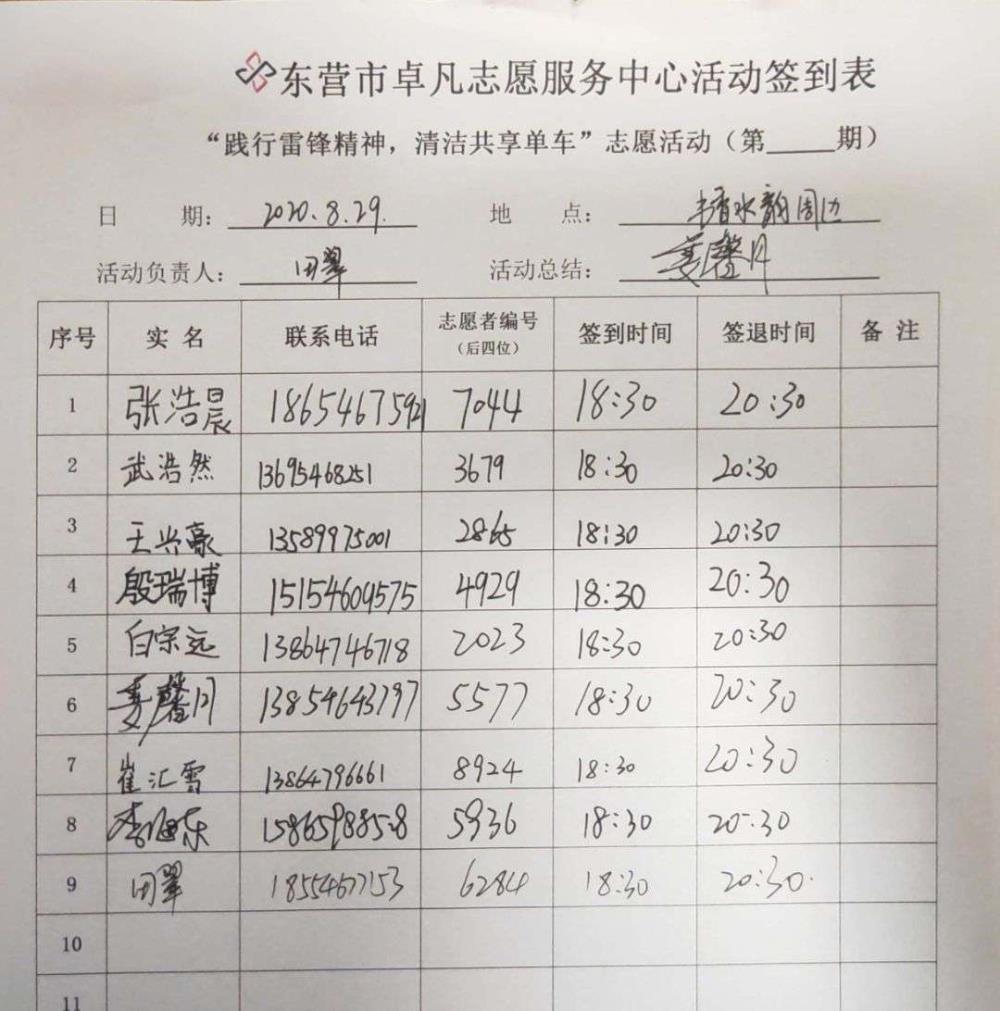 东营市卓凡志愿服务中心活动签到表
“践行雷锋精神，清洁共享单车”志愿活动（第____期）
日 期：2020.8.29. 地 点：丰香水韵周边
活动负责人：田翠 活动总结：姜馨月
序号 实 名 联系电话 志愿者编号（后四位） 签到时间 签退时间 备 注
1 张浩晨 18654675921 7044 18:30 20:30
2 武浩然 13695468251 3679 18:30 20:30
3 王兴豪 13589975001 2865 18:30 20:30
4 殷瑞博 15154609575 4929 18:30 20:30
5 白宗远 13864746718 2023 18:30 20:30
6 姜馨月 13854643797 5577 18:30 20:30
7 崔汇雪 13864796661 8924 18:30 20:30
8 李海东 15865988528 5936 18:30 20:30
9 田翠 18554677153 6284 18:30 20:30
10
11